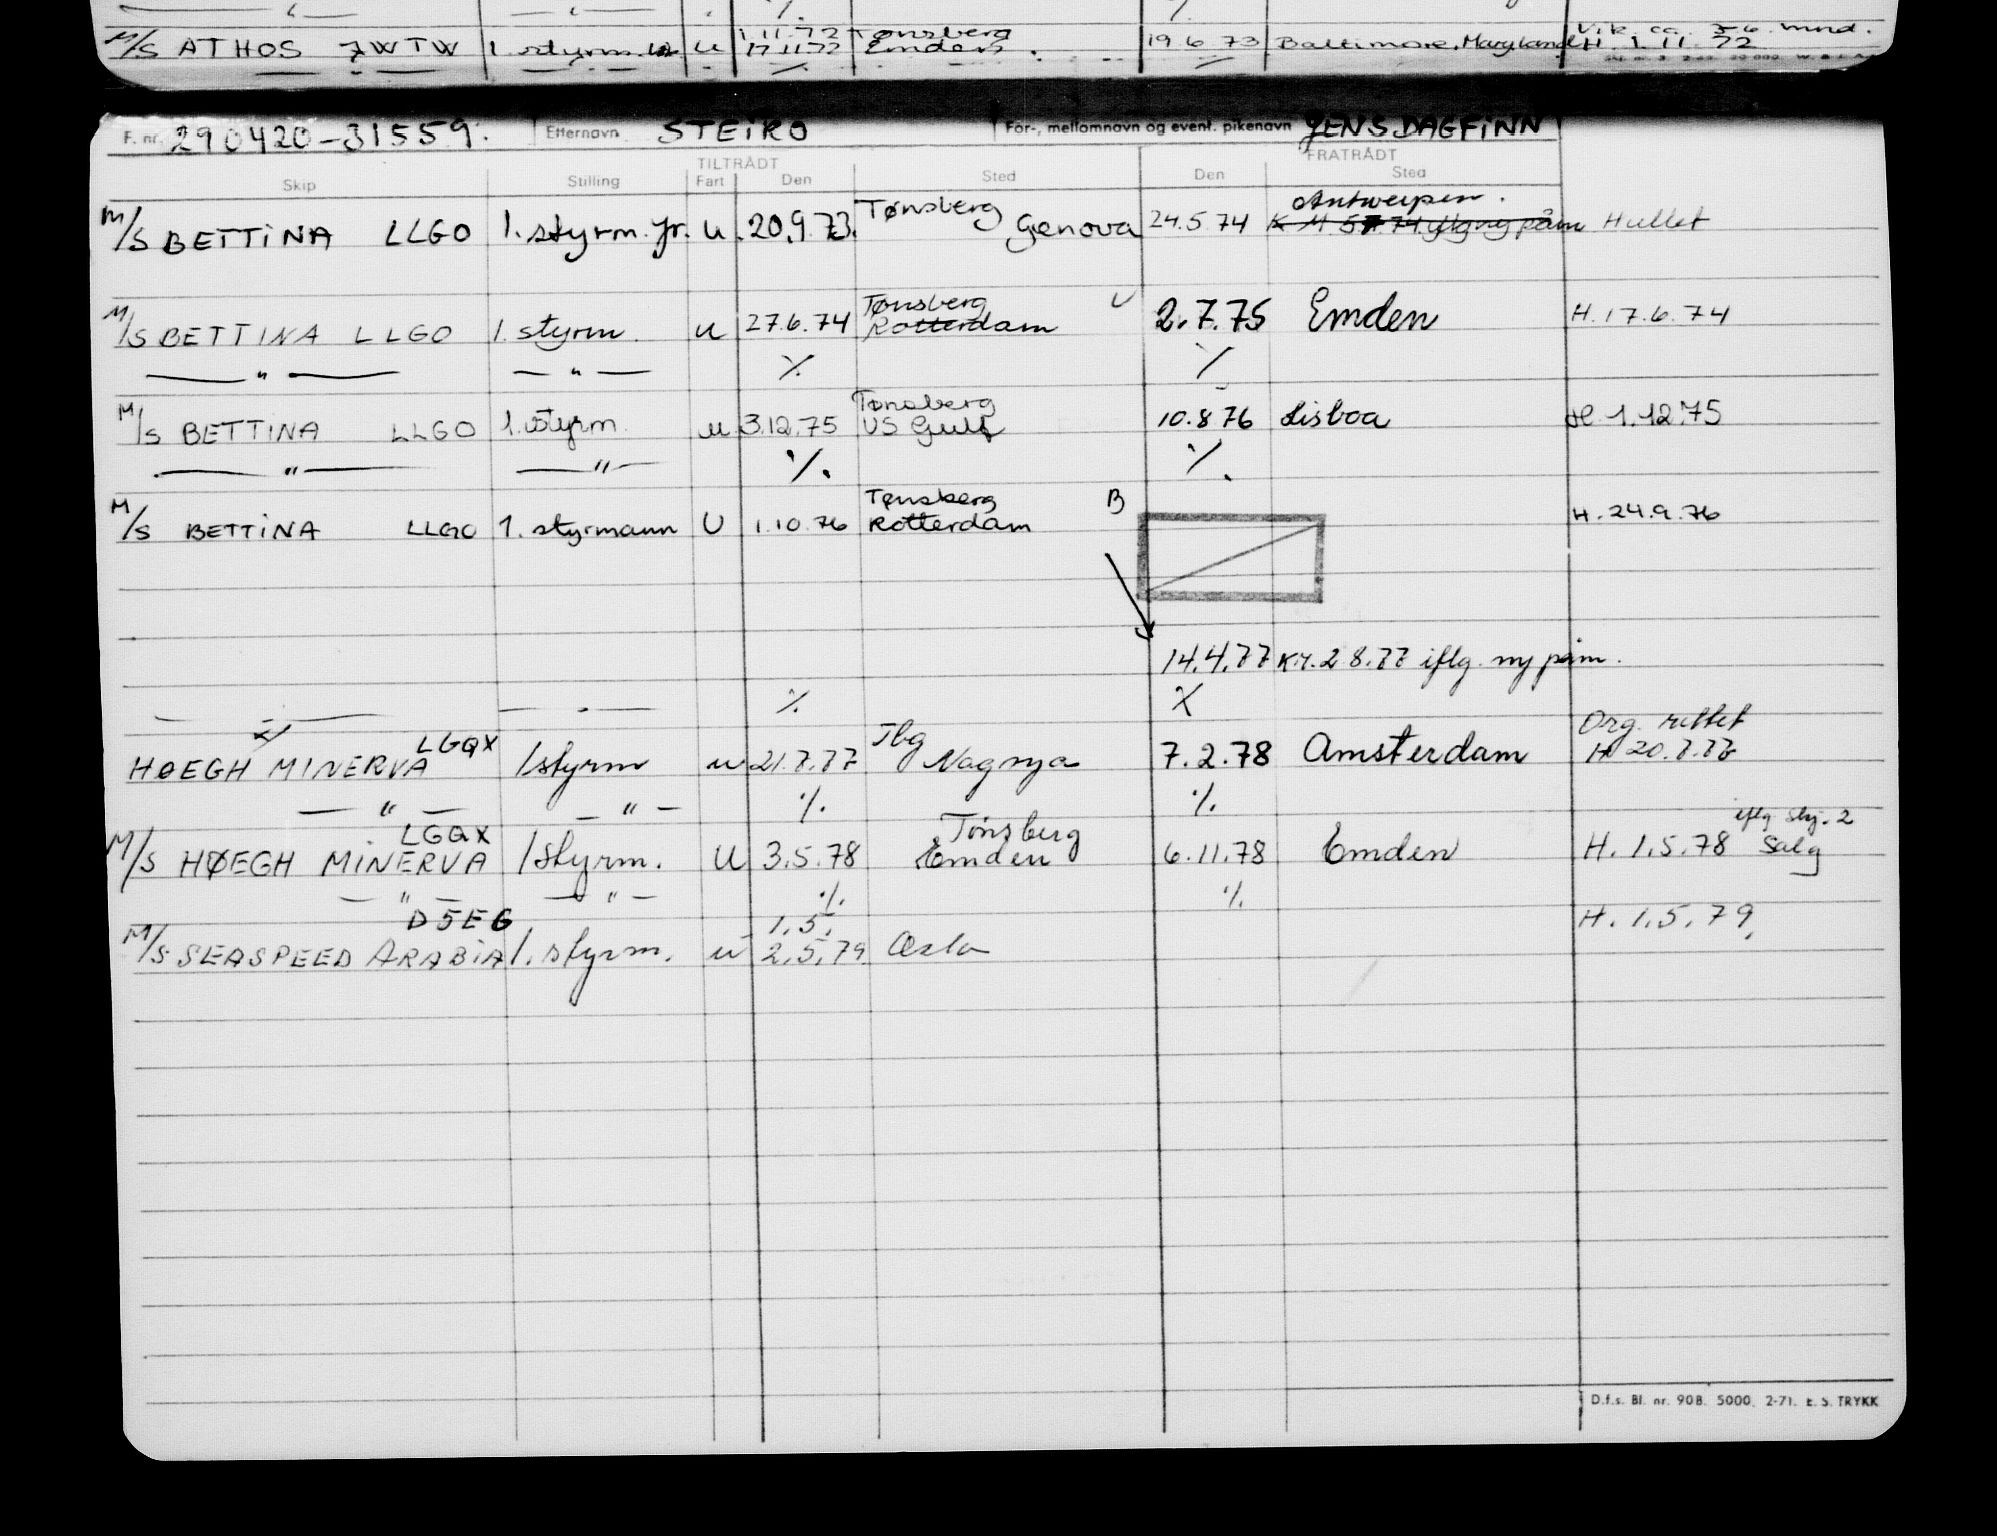 M/S ATHOS 7WTW 1. styrm. U 1.11.72 17.11.72 Tønsberg Emden. 19.6.73 Baltimore, Maryland H. 1.11.72
F. nr. 290420-31559. Etternavn STEIRO For-, mellomnavn og event. pikenavn JENS DAGFINN
TILTRÅDT FRATRÅDT
Skip Stilling Fart Den Sted Den Sted
Antwerpen.
Tønsberg
M/S BETTINA LLGO 1. styrm. fr. u. 20.9.73. Genova 24.5.74 Hullet
Tønsberg
M/S BETTINA LLGO 1. styrm. u 27.6.74 Rotterdam U 2.7.75 Emden H. 17.6.74
— " — — " — ./. ./.
Tønsberg
M/S BETTINA LLGO 1. styrm. u 3.12.75 US Gulf 10.8.76 Lisboa H. 1.12.75
— " — — " — ./. ./.
Tønsberg B
M/S BETTINA LLGO 1. styrmann U 1.10.76 Rotterdam H. 24.9.76
14.4.77 K.M. 2 8.77 iflg. ny påm.
— " — — " — ./. ./.
Org. rettet
LGQX Tbg
HØEGH MINERVA 1 styrm u 21.7.77 Nagoya 7.2.78 Amsterdam H 20.7.77
— " — — " — ./. ./.
iflg skj. 2
LGQX Tønsberg
M/S HØEGH MINERVA 1 styrm. U 3.5.78 Emden 6.11.78 Emden H. 1.5.78 Salg
— " — — " — ./. ./.
D5EG 1.5. H. 1.5.79.
M/S SEASPEED ARABIA 1. styrm. u 2.5.79. Oslo
D.f.s. Bl. nr. 90B. 5000. 2-71. E. S. TRYKK